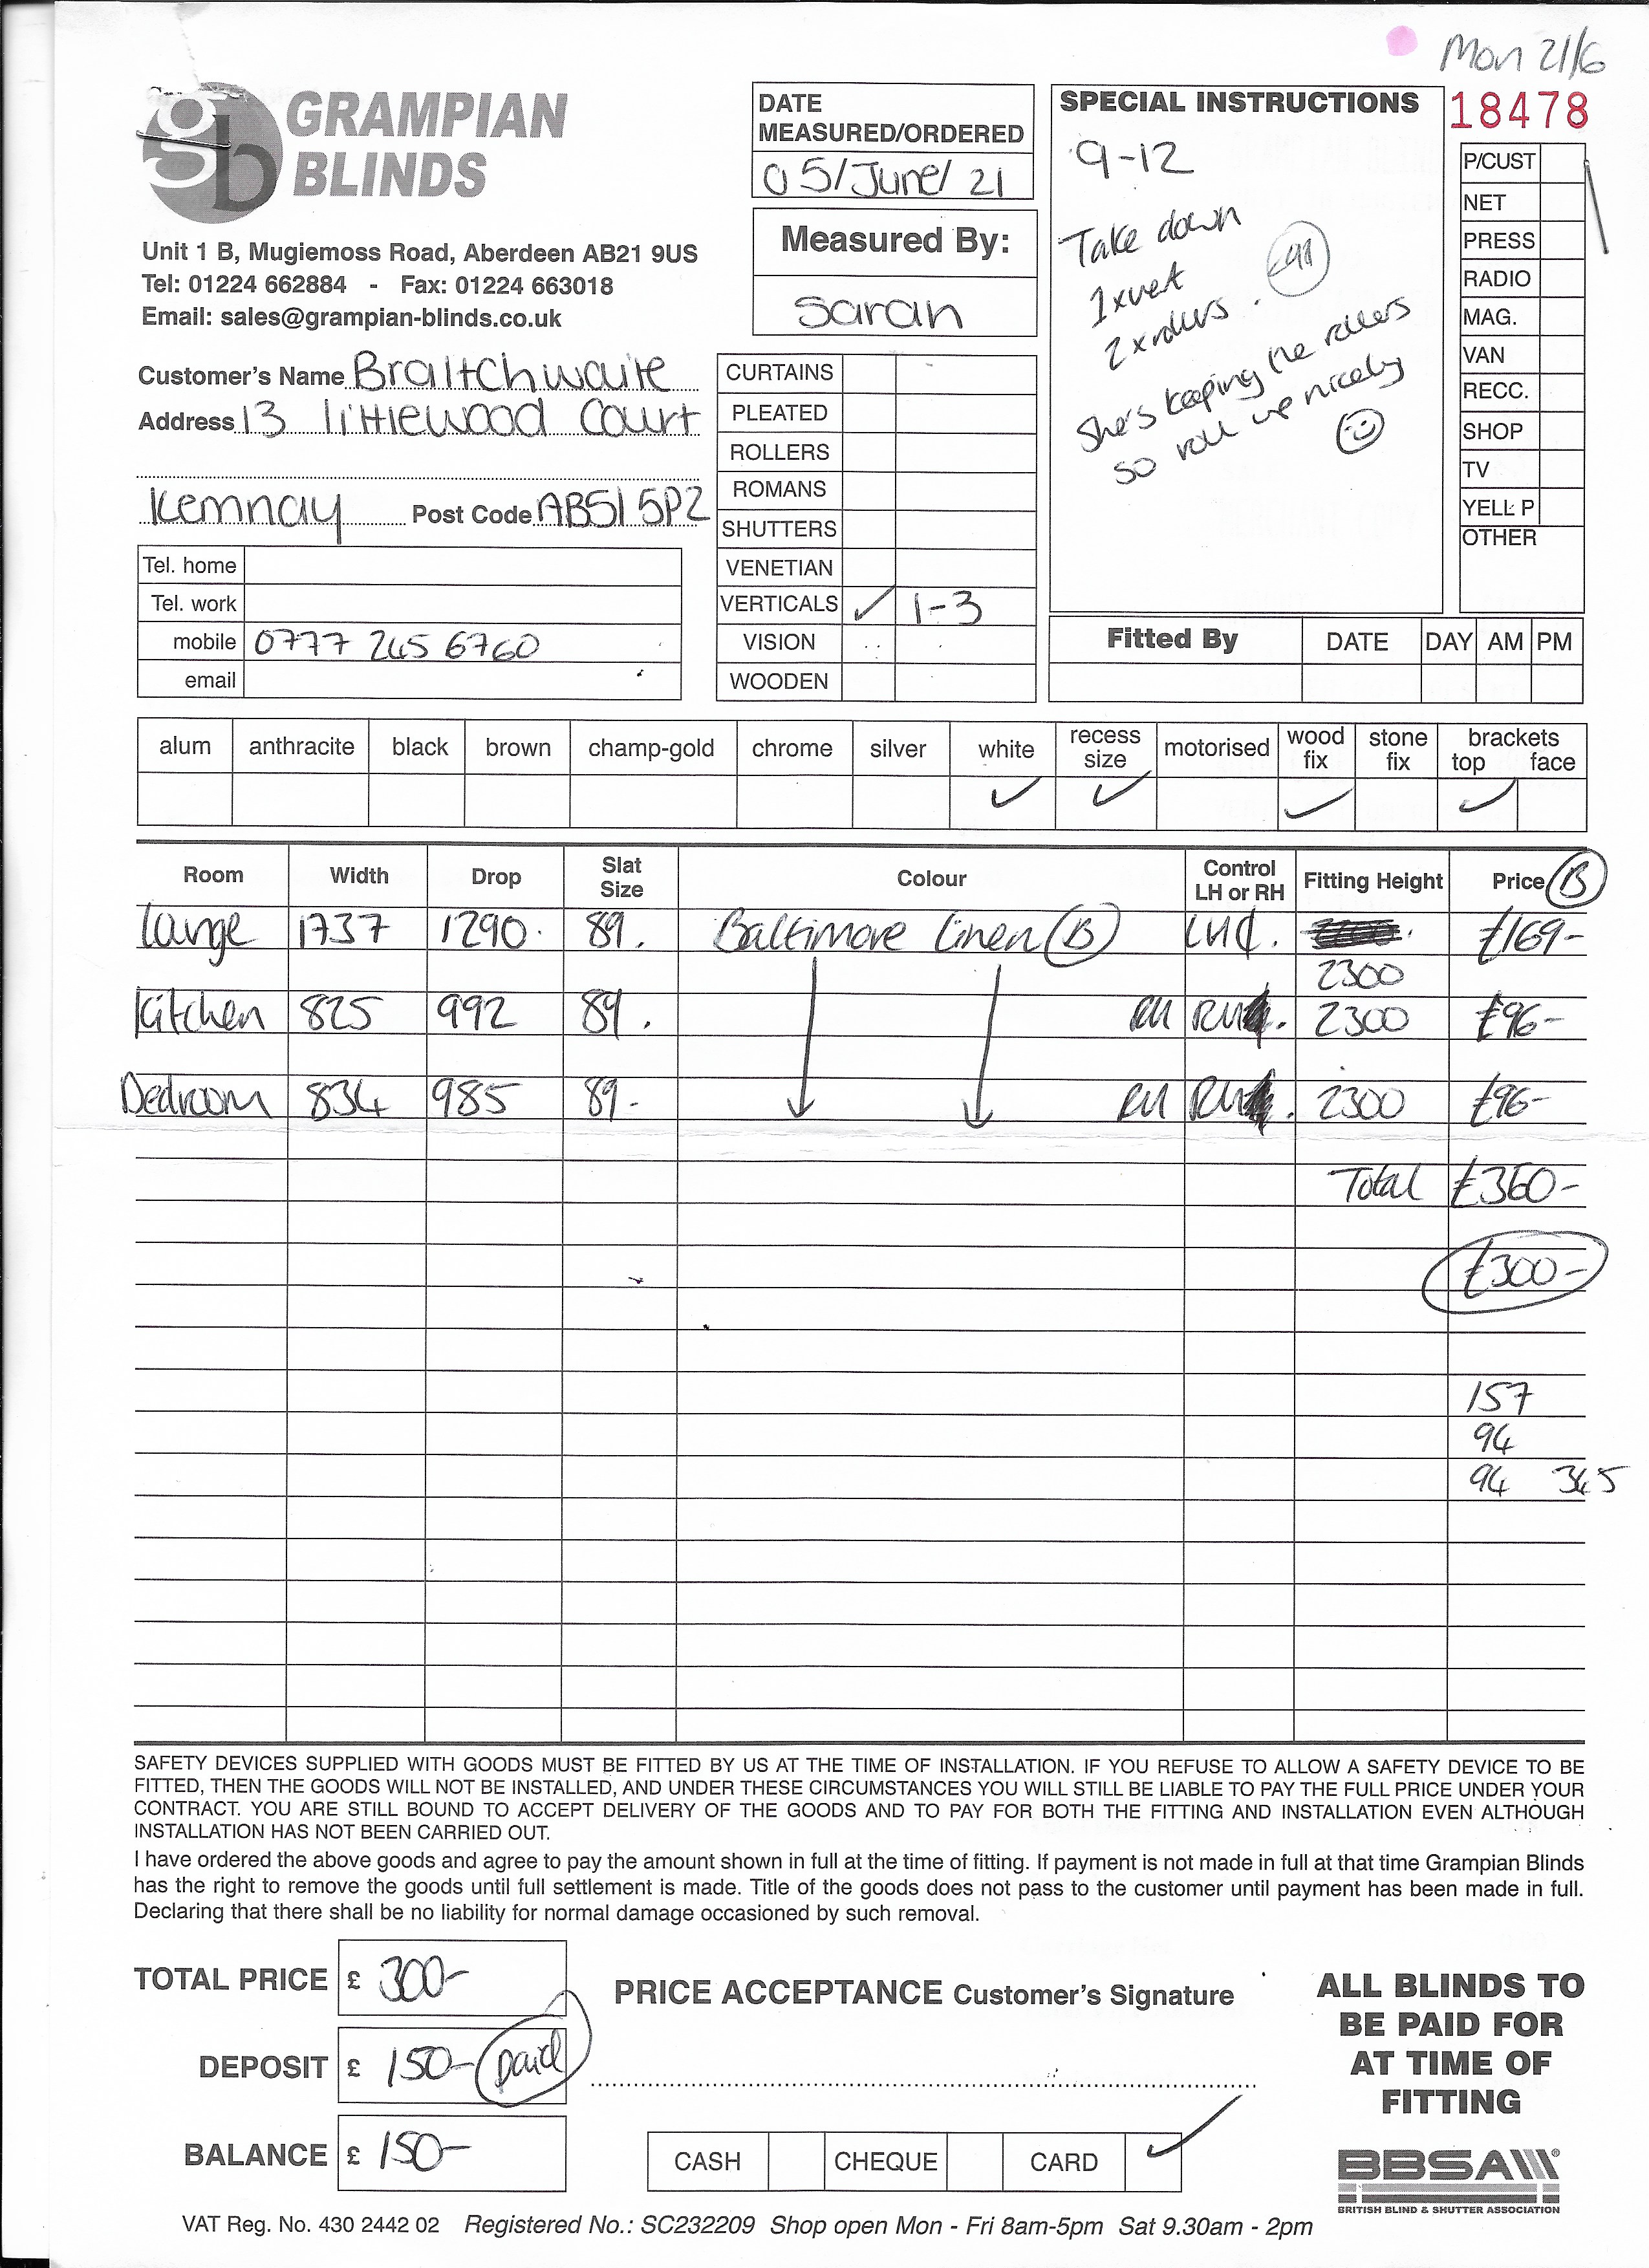 Mon 21/6
GRAMPIAN
BLINDS
Unit 1 B, Mugiemoss Road, Aberdeen AB21 9US
Tel: 01224 662884 - Fax: 01224 663018
Email: sales@grampian-blinds.co.uk
Customer's Name Braitchwaite
Address 13 littlewood Court
Kemnay Post Code AB51 5PZ
Tel. home
Tel. work
mobile 0777 245 6760
email
DATE
MEASURED/ORDERED
05/June/21
Measured By:
Sarah
CURTAINS
PLEATED
ROLLERS
ROMANS
SHUTTERS
VENETIAN
VERTICALS ✓ 1-3
VISION
WOODEN
SPECIAL INSTRUCTIONS
9-12
Take down
1 x vert
2 x rollers.
She's keeping the rollers
so roll up nicely
18478
P/CUST
NET
PRESS
RADIO
MAG.
VAN
RECC.
SHOP
TV
YELL P
OTHER
Fitted By DATE DAY AM PM
alum anthracite black brown champ-gold chrome silver white recess size motorised wood fix stone fix brackets top face
✓ ✓ ✓ ✓
Room Width Drop Slat Size Colour Control LH or RH Fitting Height Price B
Lounge 1737 1290. 89. Baltimore Linen B LH £169-
2300
Kitchen 825 992 89. RH RH 2300 £96-
Bedroom 834 985 89- RH RH 2300 £96-
Total £360-
£300-
157
94
94 345
SAFETY DEVICES SUPPLIED WITH GOODS MUST BE FITTED BY US AT THE TIME OF INSTALLATION. IF YOU REFUSE TO ALLOW A SAFETY DEVICE TO BE
FITTED, THEN THE GOODS WILL NOT BE INSTALLED, AND UNDER THESE CIRCUMSTANCES YOU WILL STILL BE LIABLE TO PAY THE FULL PRICE UNDER YOUR
CONTRACT. YOU ARE STILL BOUND TO ACCEPT DELIVERY OF THE GOODS AND TO PAY FOR BOTH THE FITTING AND INSTALLATION EVEN ALTHOUGH
INSTALLATION HAS NOT BEEN CARRIED OUT.
I have ordered the above goods and agree to pay the amount shown in full at the time of fitting. If payment is not made in full at that time Grampian Blinds
has the right to remove the goods until full settlement is made. Title of the goods does not pass to the customer until payment has been made in full.
Declaring that there shall be no liability for normal damage occasioned by such removal.
TOTAL PRICE £ 300-
DEPOSIT £ 150- paid
BALANCE £ 150-
PRICE ACCEPTANCE Customer's Signature
CASH CHEQUE CARD ✓
ALL BLINDS TO
BE PAID FOR
AT TIME OF
FITTING
BBSA
BRITISH BLIND & SHUTTER ASSOCIATION
VAT Reg. No. 430 2442 02 Registered No.: SC232209 Shop open Mon - Fri 8am-5pm Sat 9.30am - 2pm